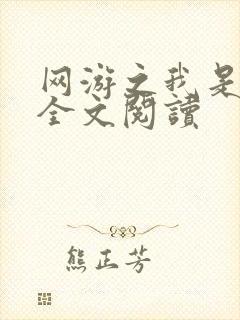 网游之我是
全文閱讀
熊正芳